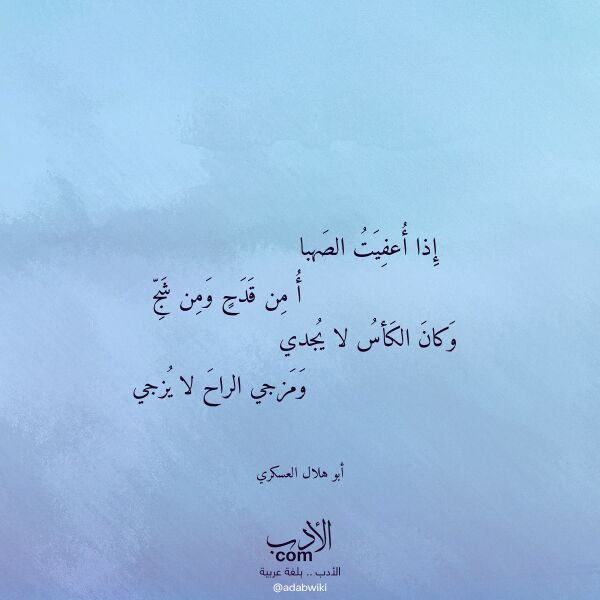 إِذا أُعفِيَتُ الصَهبا
أُ مِن قَدَحٍ وَمِن شَجِّ
وَكانَ الكَأسُ لا يُجدي
وَمَزجي الراحَ لا يُزجي
أبو هلال العسكري
الأدب
com
الأدب .. بلغة عربية
@adabwiki